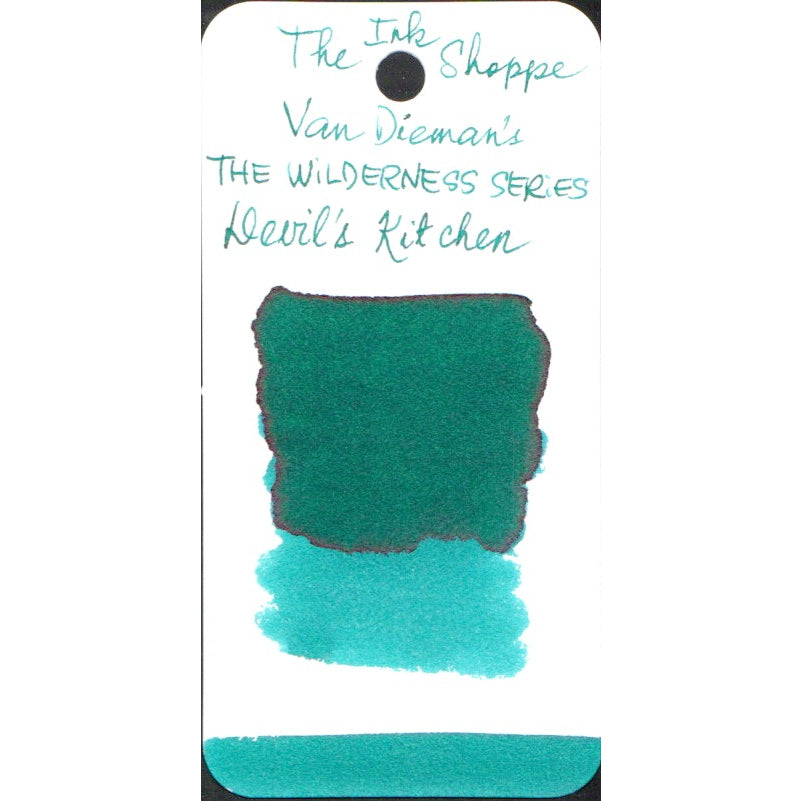 The Ink Shoppe
Van Dieman's
THE WILDERNESS SERIES
Devil's Kitchen